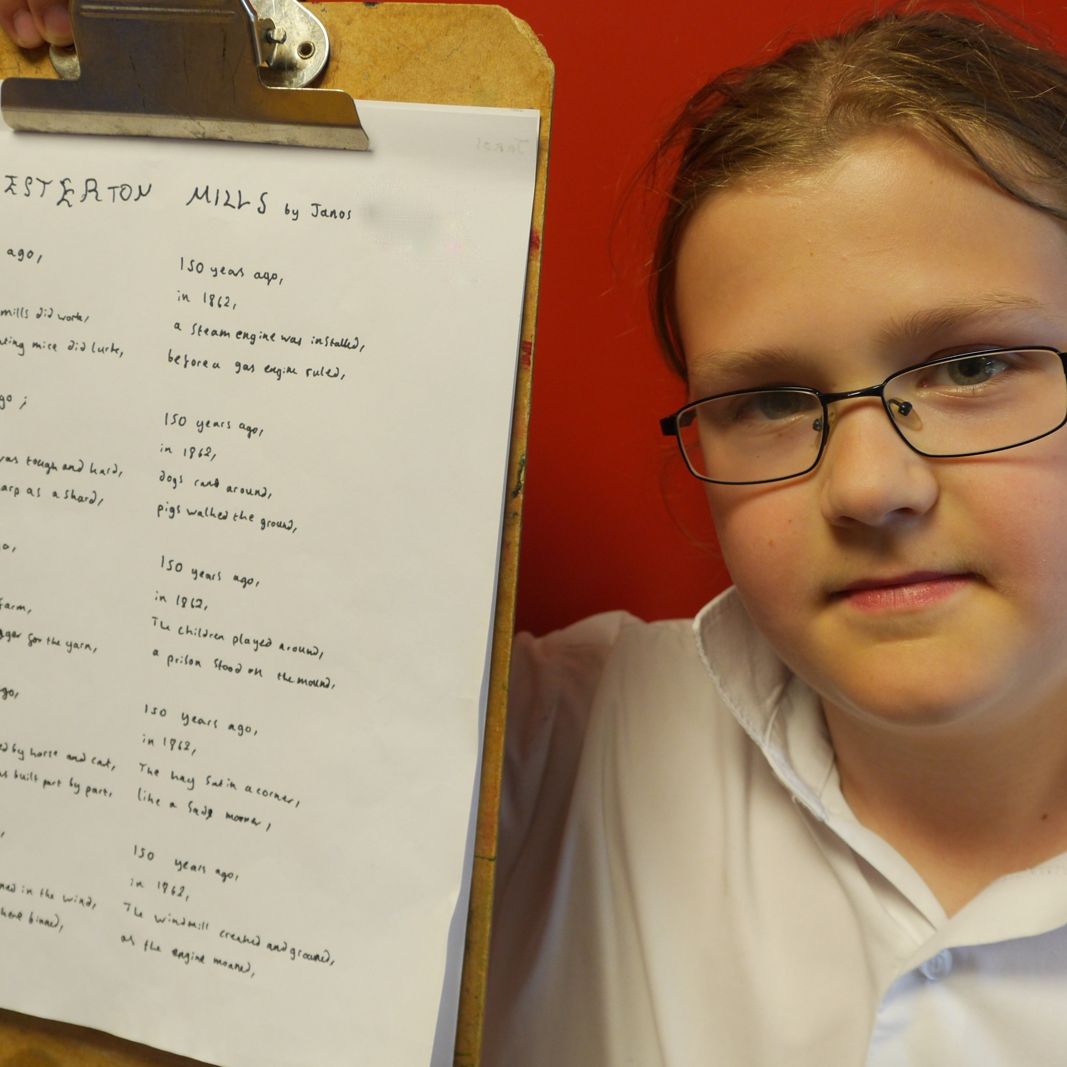 ESTERTON MILLS by Janos
ago,
mills did work,
mice did lurk,
go;
was tough and hard,
arp as a shard,
farm,
gger for the yarn,
go,
ed by horse and cart,
s built part by part,
ned in the wind,
here binned,
150 years ago,
in 1862,
a steam engine was installed,
before a gas engine ruled,
150 years ago,
in 1862,
dogs ran around,
pigs walked the ground,
150 years ago,
in 1862,
The children played around,
a prison stood on the mound,
150 years ago,
in 1862,
The hay sat in a corner,
like a sad morner,
150 years ago,
in 1862,
The windmill creaked and groaned,
as the engine moaned,